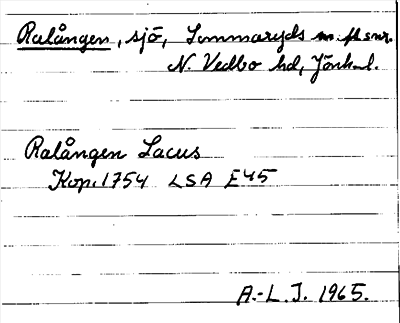 Ralången, sjö, Lommaryds m. fl snr.
N. Vedbo hd, Jönk. l.
Ralången Lacus
Kop. 1754 LSA E45
A.-L. J. 1965.